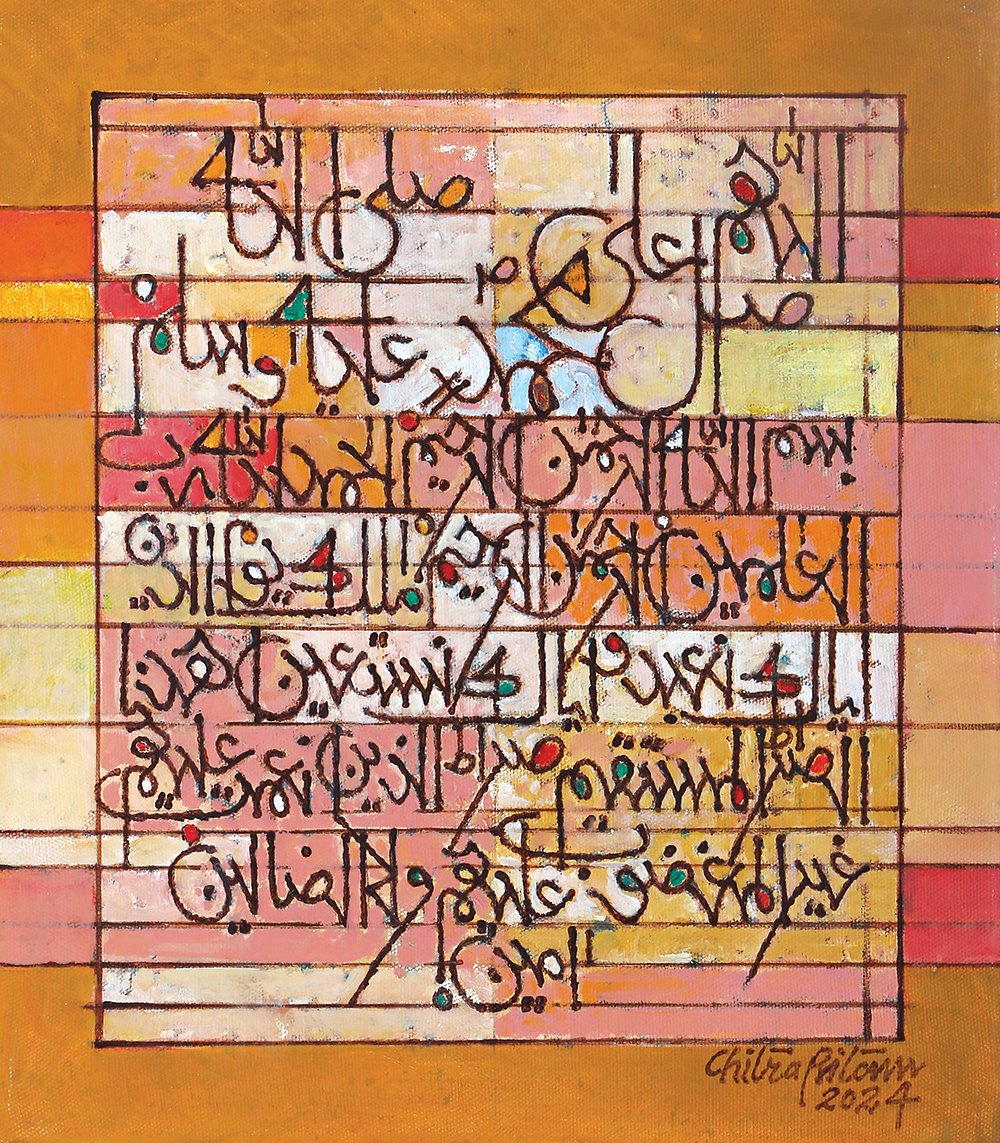 اللهم صل على محمد صلى الله
عليه وسلم
بسم الله الرحمن الرحيم الحمد لله رب
العالمين الرحمن الرحيم ملك يوم الدين
اياك نعبد و اياك نستعين اهدنا
الصراط المستقيم صراط الذين انعمت عليهم
غير المغضوب عليهم ولا الضالين
امين
Chitra Pritam
2024